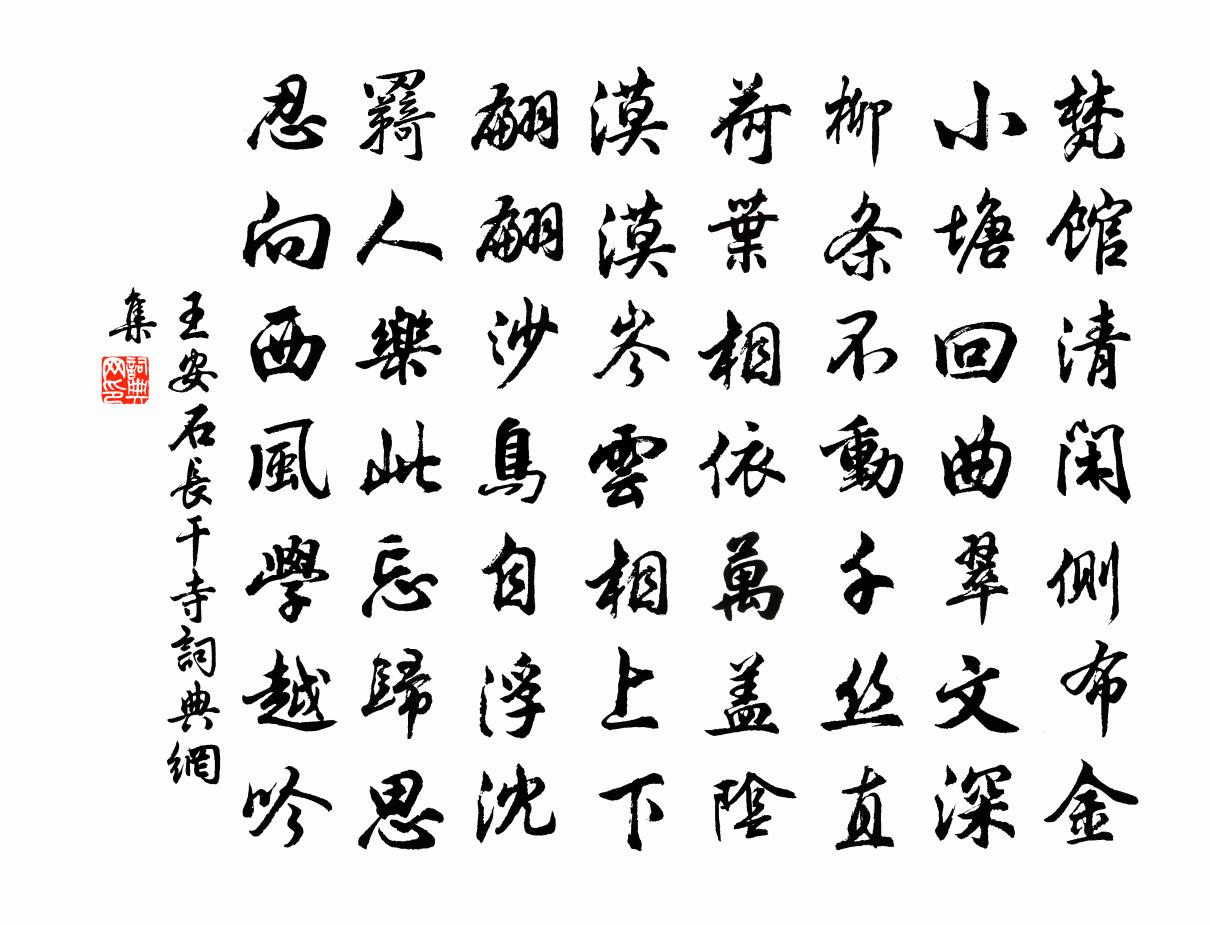 梵馆清閑側布金
小塘回曲翠文深
柳条不動千丝直
荷葉相依萬盖陰
漠漠岑雲相上下
翩翩沙鳥自浮沈
羇人樂此忘歸思
忍向西風學越吟
王安石長干寺詞典網
集
詞典網印